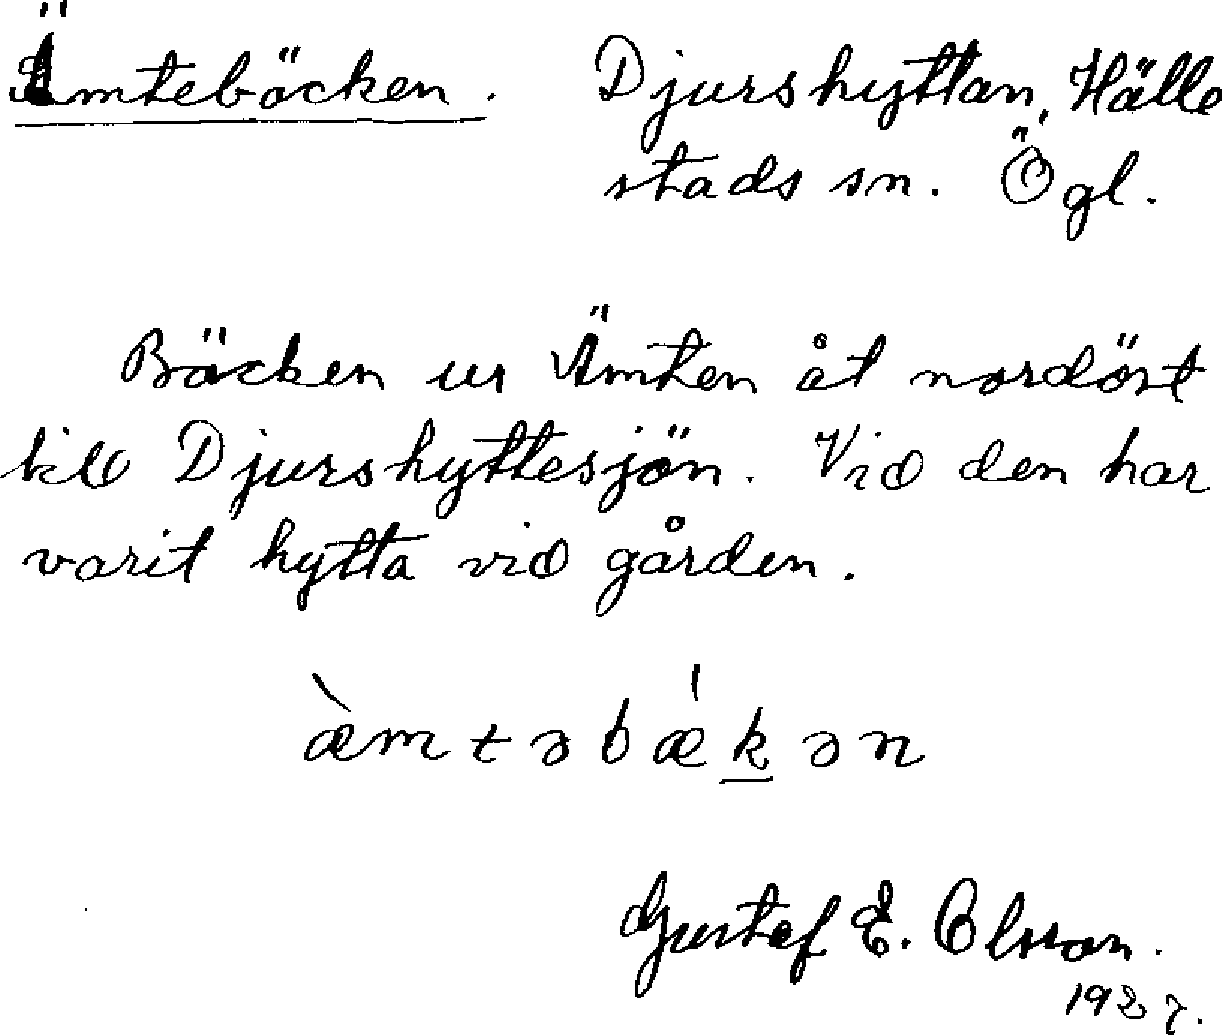 Ämtebäcken. Djurshyttan, Hälle
stads sn. Ögl.
Bäcken ur Ämten åt nordöst
till Djurshyttesjön. Vid den har
varit hytta vid gården.
æ̀mtəbǽkən
Gustaf E. Olsson.
1927.